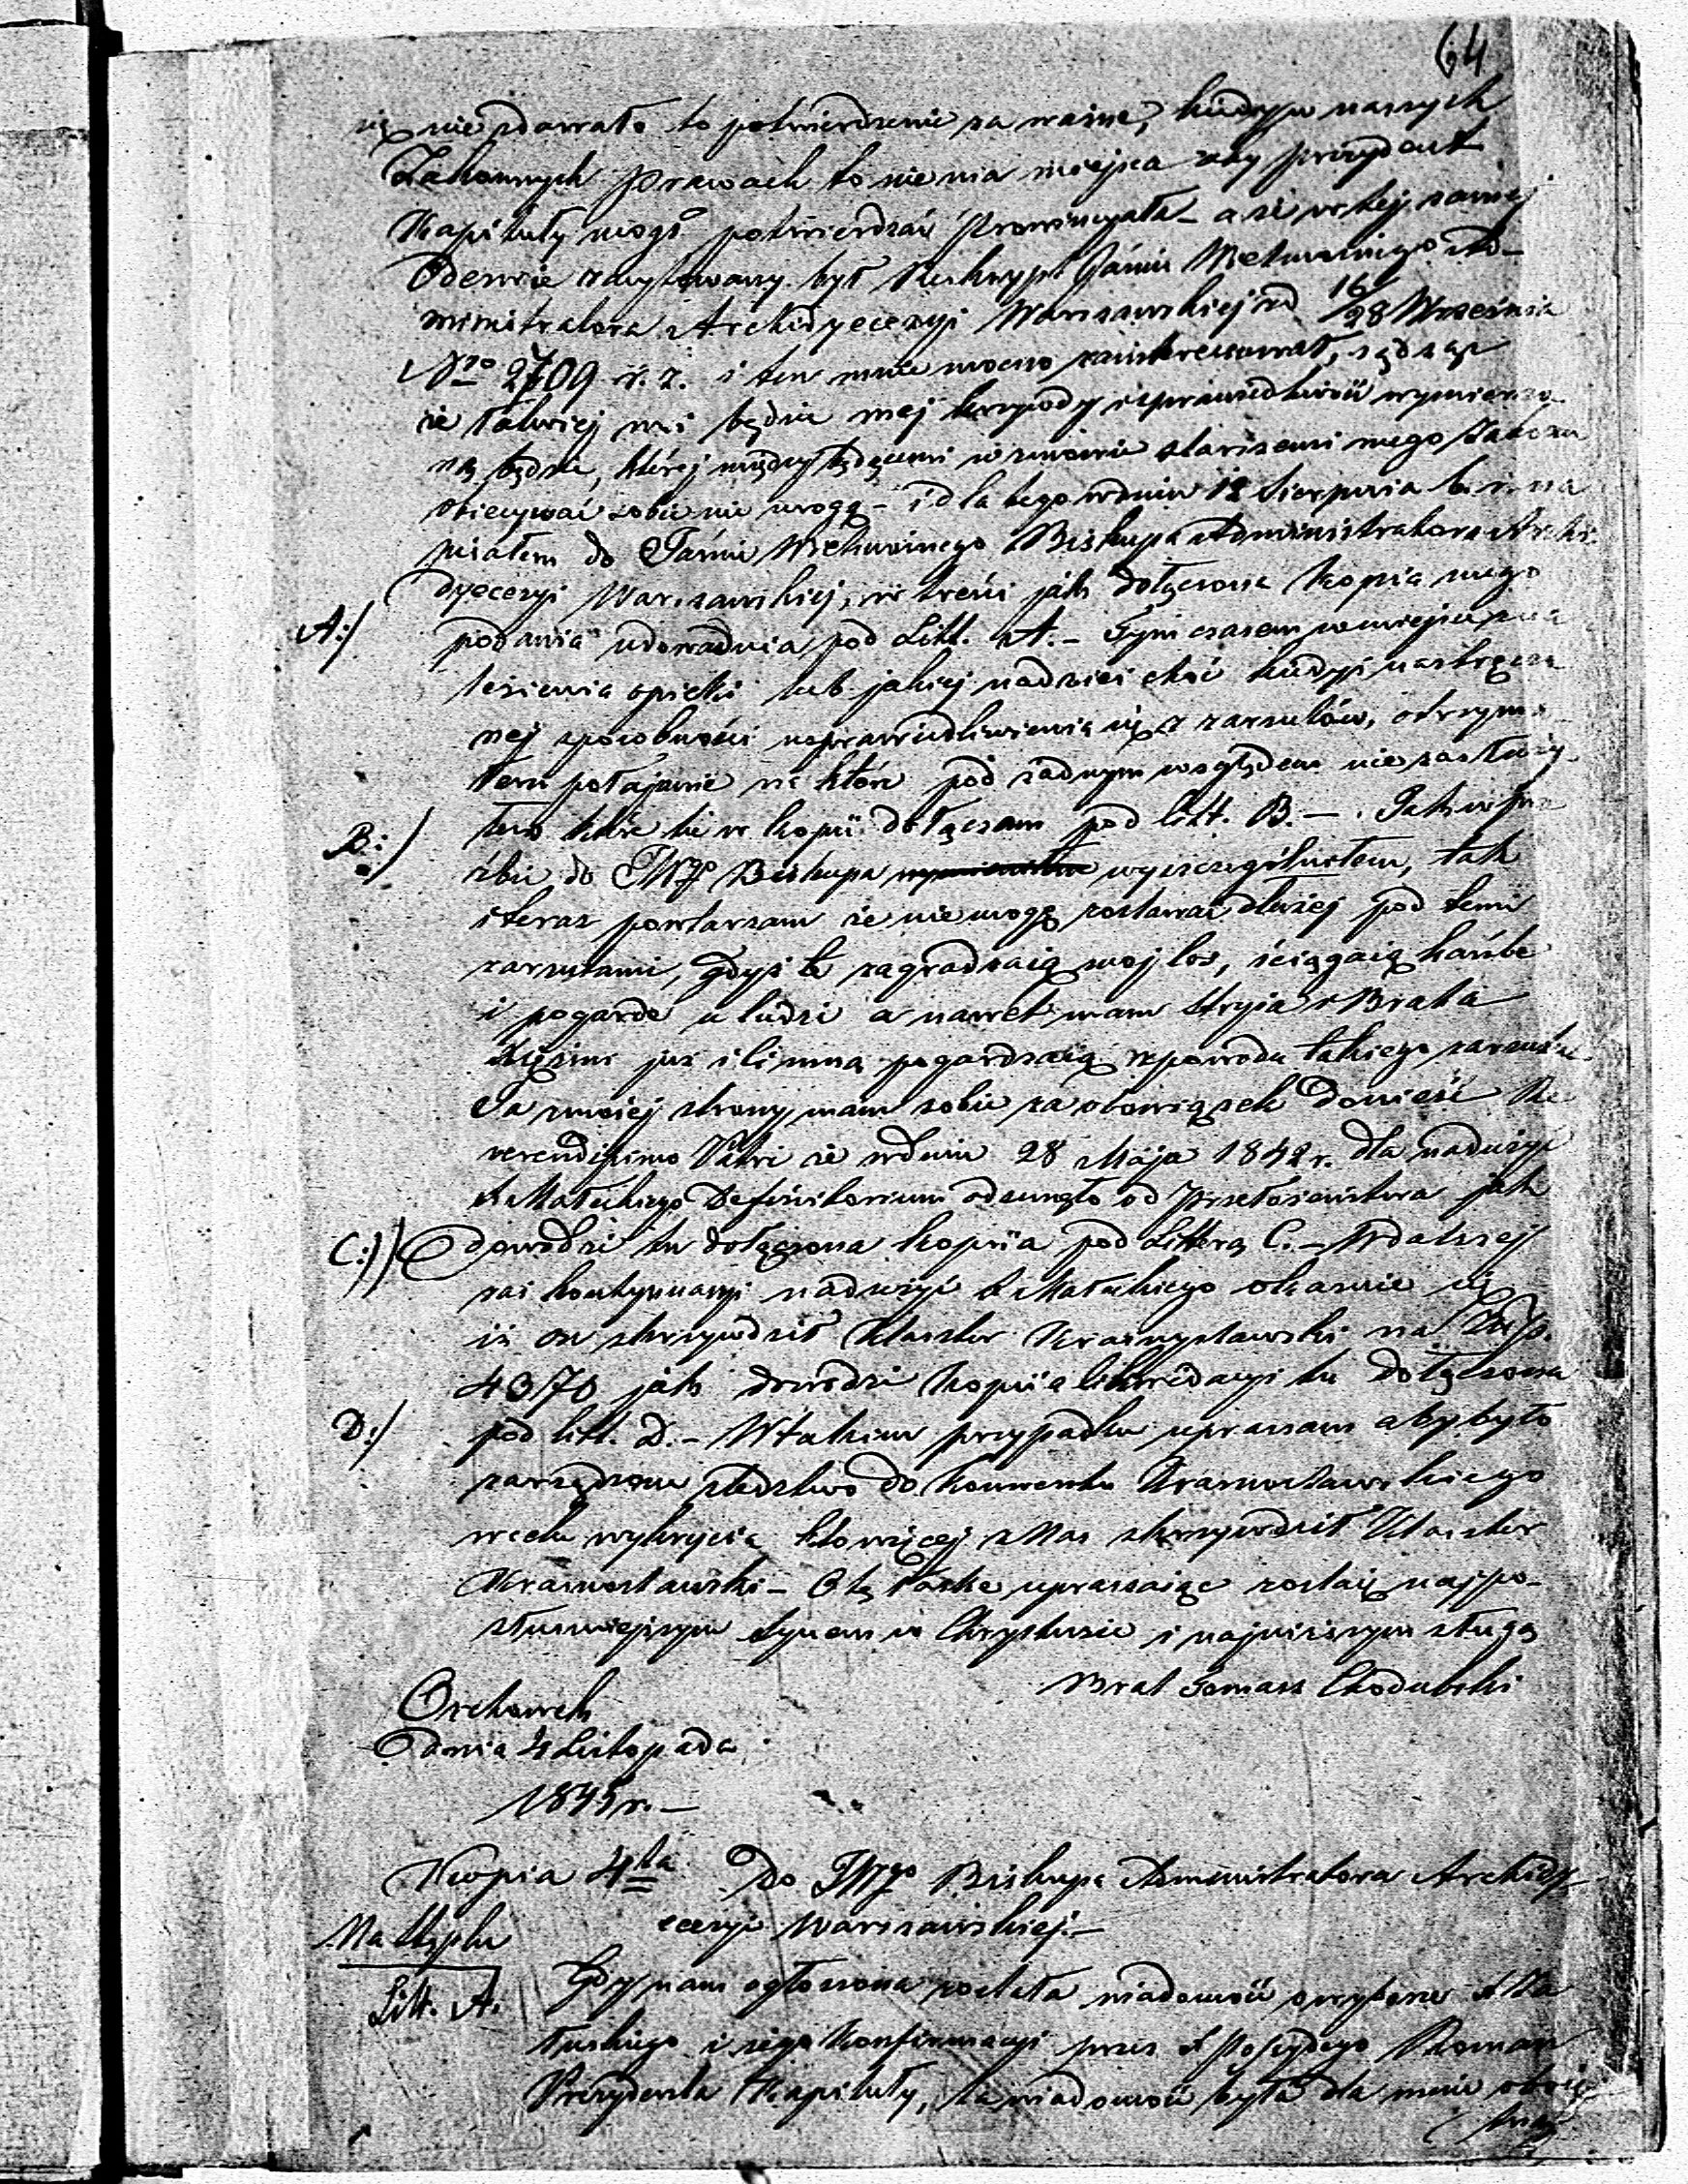 64
się nie zdawało to potwierdzenie za ważne, kiedy w naszych
Zakonnych prawach to nie ma miejsca aby prezydent
Kapituły mógł potwierdzać Prowincyała – a że w tej samej
Odezwie zacytowany był Reskrypt Jaśnie Wielmożnego Ad-
ministratora Archidyecezyi Warszawskiej zd 16/28 Września
Nro 2709 r. z. i ten mnie mocno zainteresował, sądząc
że łatwiej mi będzie mej krzywdy i sprawiedliwość wymierzo-
ną będzie, której między będącemi w zmowie starszemi mego Zakonu
obiecywać sobie nie mogę – i dla tego w dniu 12 Sierpnia b. r. na
pisałem do Jaśnie Wielmożnego Biskupa Administratora Archi-
dyecezyi Warszawskiej, w treści jak dołączona kopia mego
A:/ podania udowadnia pod Litt. A. – Tym czasem w miejscu zna
lezienia opieki lub jakiej nadziei choć kiedyś nastręczo
nej sposobności usprawiedliwienia się z zarzutów, otrzyma
łem połajanie na które pod żadnym względem nie zasłuży-
B:/ łem które tu w kopii dołączam pod litt. B. – . Jak w proź
źbie do JWgo Biskupa wyszczególniłem, tak
i teraz powtarzam że nie mogę zostawać dłużej pod temi
zarzutami, gdyż te zagradzają mój los, ściągaią hańbe
i pogarde u ludzi a nawet mam Stryia i Brata
Księżmi już i ci mną pogardzaią z powodu takiego zarzutu
Ja z moiej strony mam sobie za obowiązek Donieść Re
verendissimo Patri że w dniu 28 Maja 1842 r. dla nadużyć
X Małeckiego Definitorium odsunęło od Przełożeństwa jak
C:)) dowodzi tu dołączona kopiia pod Litterą C. – W dalszej
zaś kontynuacyi nadużyć X Małeckiego okazuie się
iż on skrzywdził Klasztor Krasnystawski na Złp.
4370 jak dowodzi kopiia likwidacyi tu dołączona
D:/ pod litt. D. – W takim przypadku upraszam aby było
zarządzone śledztwo do konwentu Krasnostawskiego
w celu wykrycia kto więcej z Nas skrzywdził Klasztor
Krasnostawski – O tę łaske upraszaiąc zostaię najpo-
słuszniejszym synem w Chrystusie i najniższym sługą
Brat Tomasz Chodubski
Orchowek
dnia 4 Listopada
1845 r. –
Kopia 4ta Do JWgo Biskupa Administratora Archidy-
ecezyi Warszawskiej. –
Na Stęplu
Litt. A. Gdy nam ogłoszona została wiadomość o wyborze X Za
łuskiego i jego konfirmacyi przez X Roman
Prezydenta Kapituły, ta wiadomość była dla mnie oboię
tną